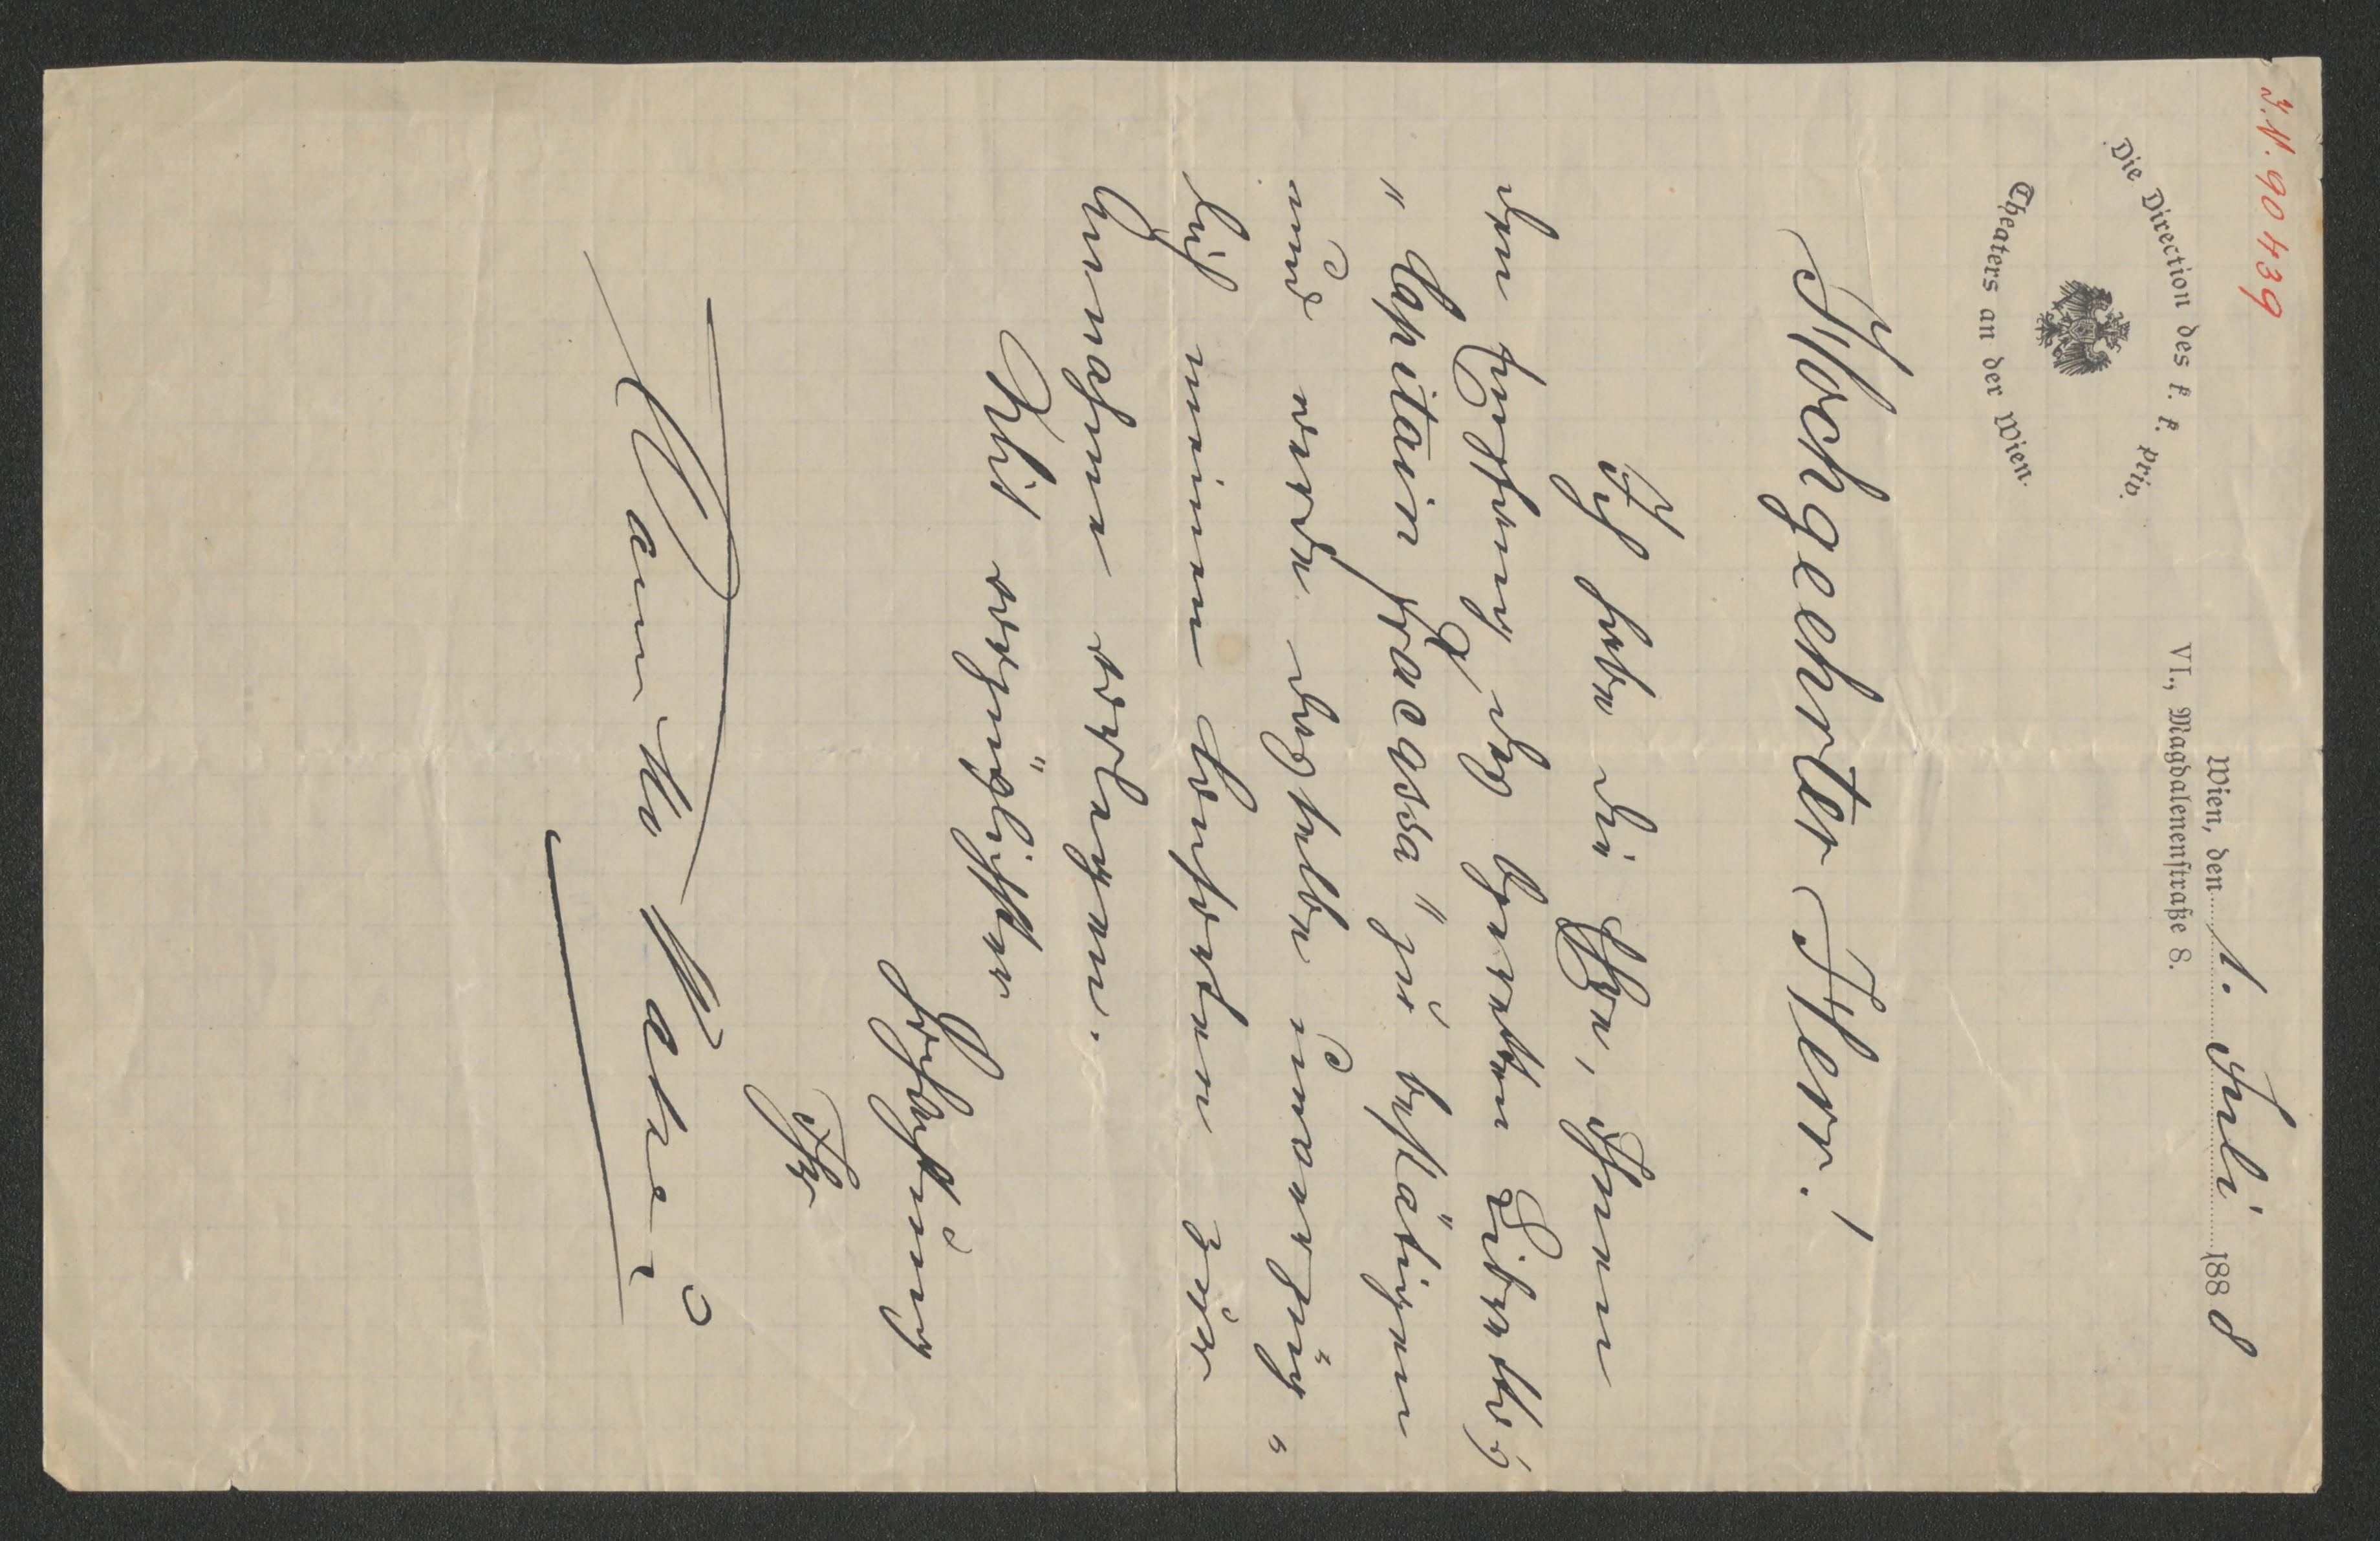 J.N. 90439
Die Direction des k. k. priv.
Theaters an der Wien.
Wien, den 1. Juli 1888
VI., Magdalenenstraße 8.
Hochgeehrter Herr!
Ich habe die Ehre, Ihnen
den Empfang des Operetten Librettos
„Capitain Fracassa" zu bestätigen
und werde dasselbe unverzüg-
lich meinem Consorten zur
Annahme vorlegen.
Mit vorzüglichster
Hochachtung
Ihr
Camillo Walzel